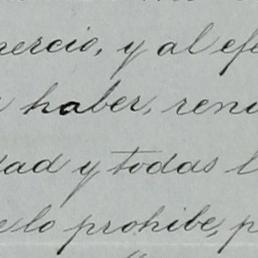 mercio, y al efe
haber, renu
dad y todas l
lo prohibe, p